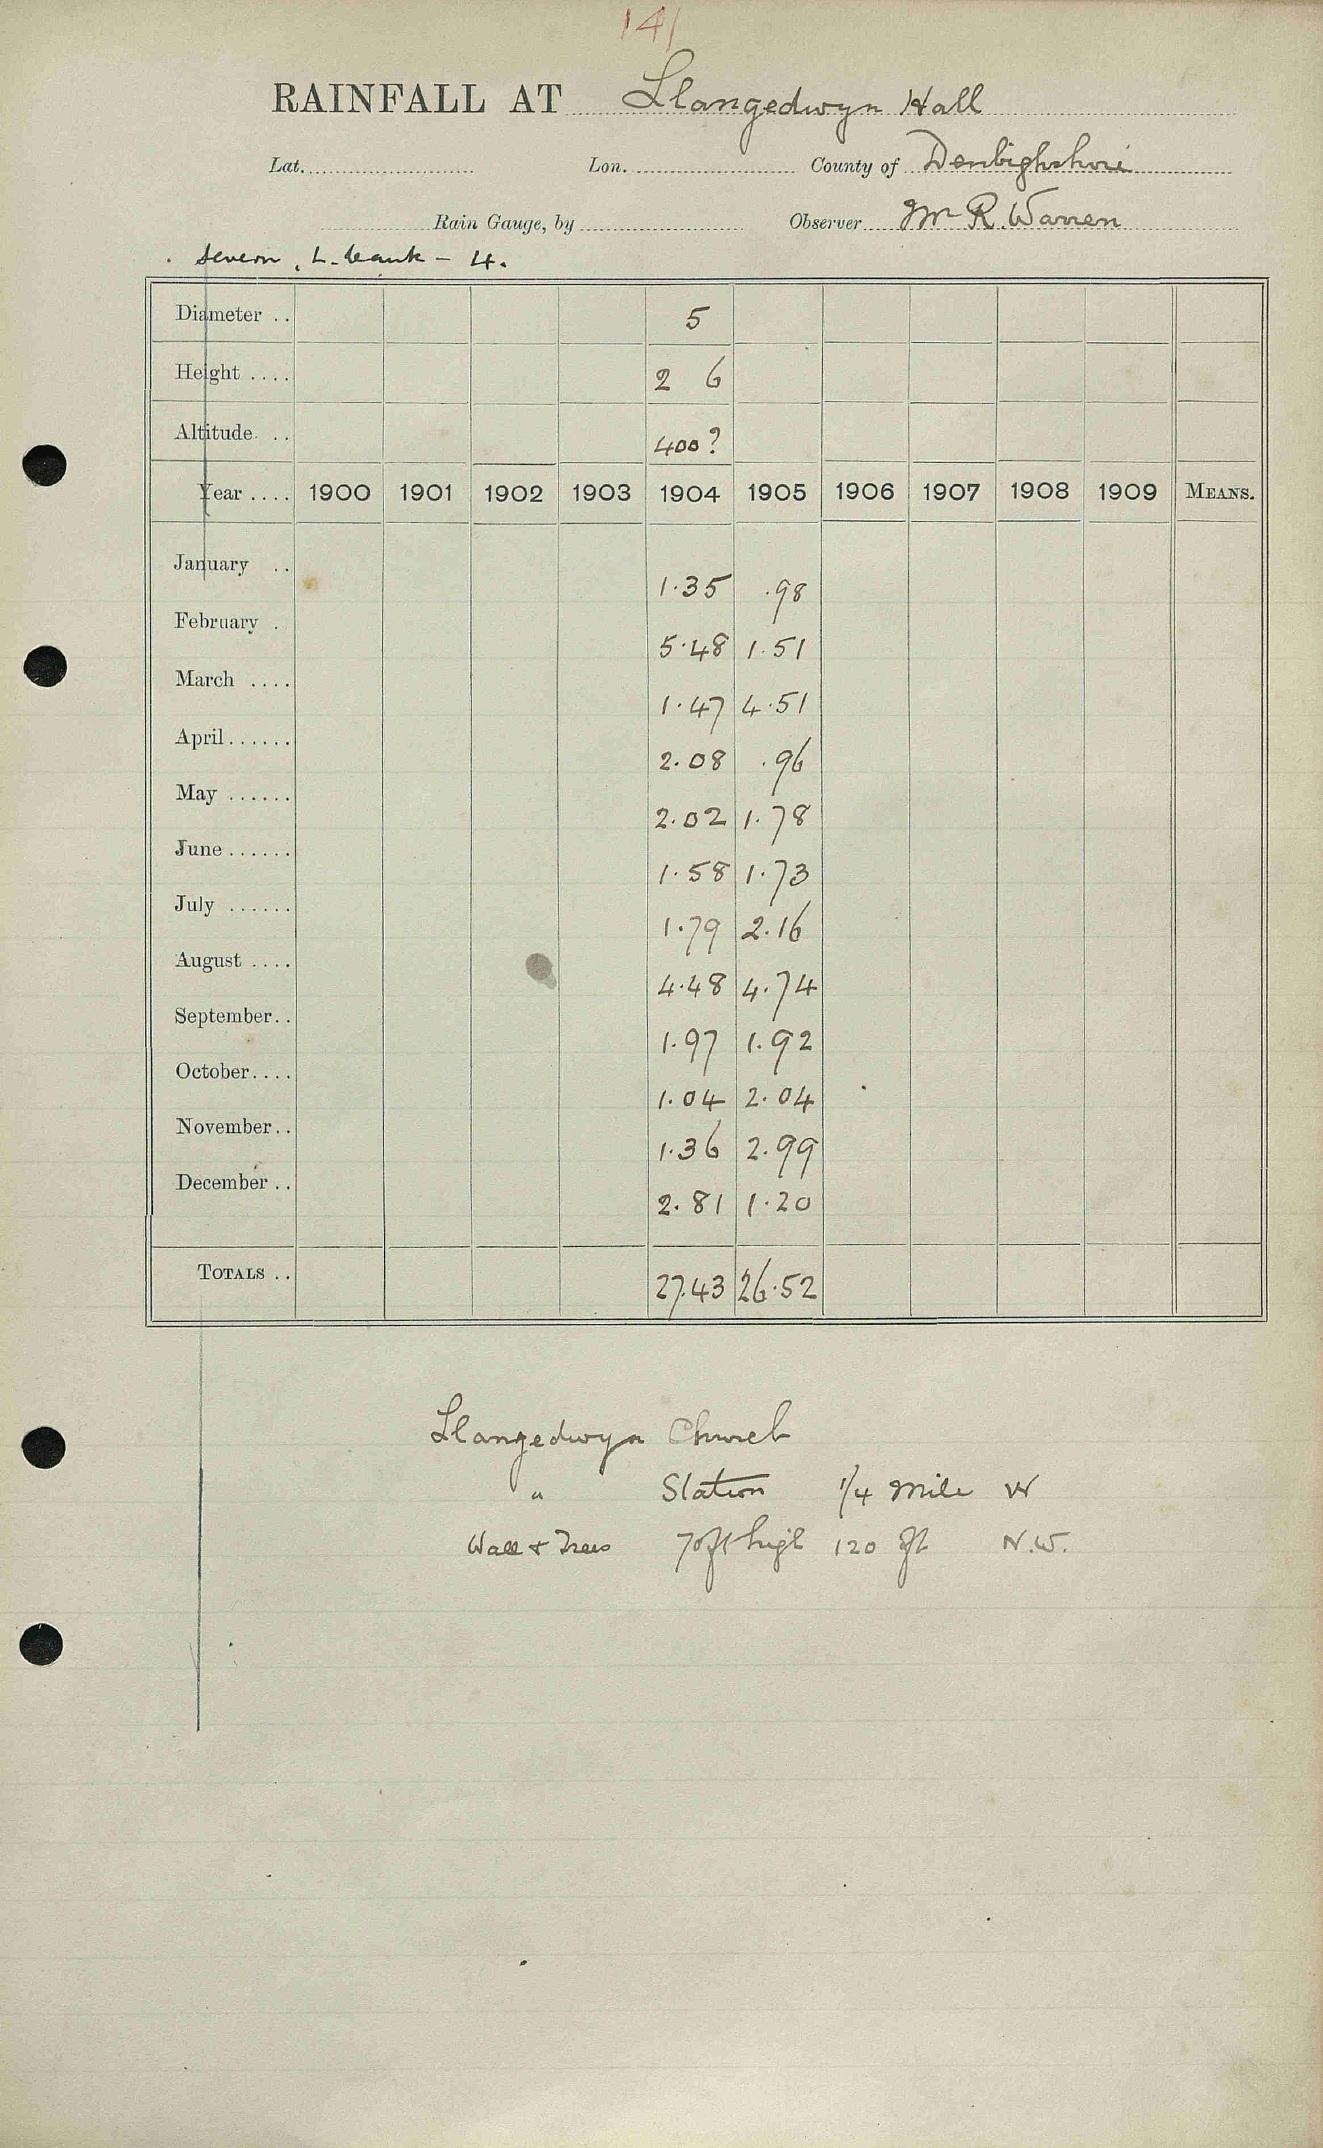 141
RAINFALL AT Llangedwyn Hall
Lat. Lon. County of Denbighshire
Rain Gauge, by Observer Mr R. Warren
Severn, L. bank - 4.
Diameter .. 5
Height .... 2 6
Altitude .. 400?
Year .... 1900 1901 1902 1903 1904 1905 1906 1907 1908 1909 MEANS.
January .. 1.35 .98
February . 5.48 1.51
March .... 1.47 4.51
April ...... 2.08 .96
May ...... 2.02 1.78
June ...... 1.58 1.73
July ...... 1.79 2.16
August .... 4.48 4.74
September.. 1.97 1.92
October.... 1.04 2.04
November.. 1.36 2.99
December .. 2.81 1.20
TOTALS .. 27.43 26.52
Llangedwyn Church
" Station 1/4 Mile W
Wall & Trees 70ft high 120 ft N.W.